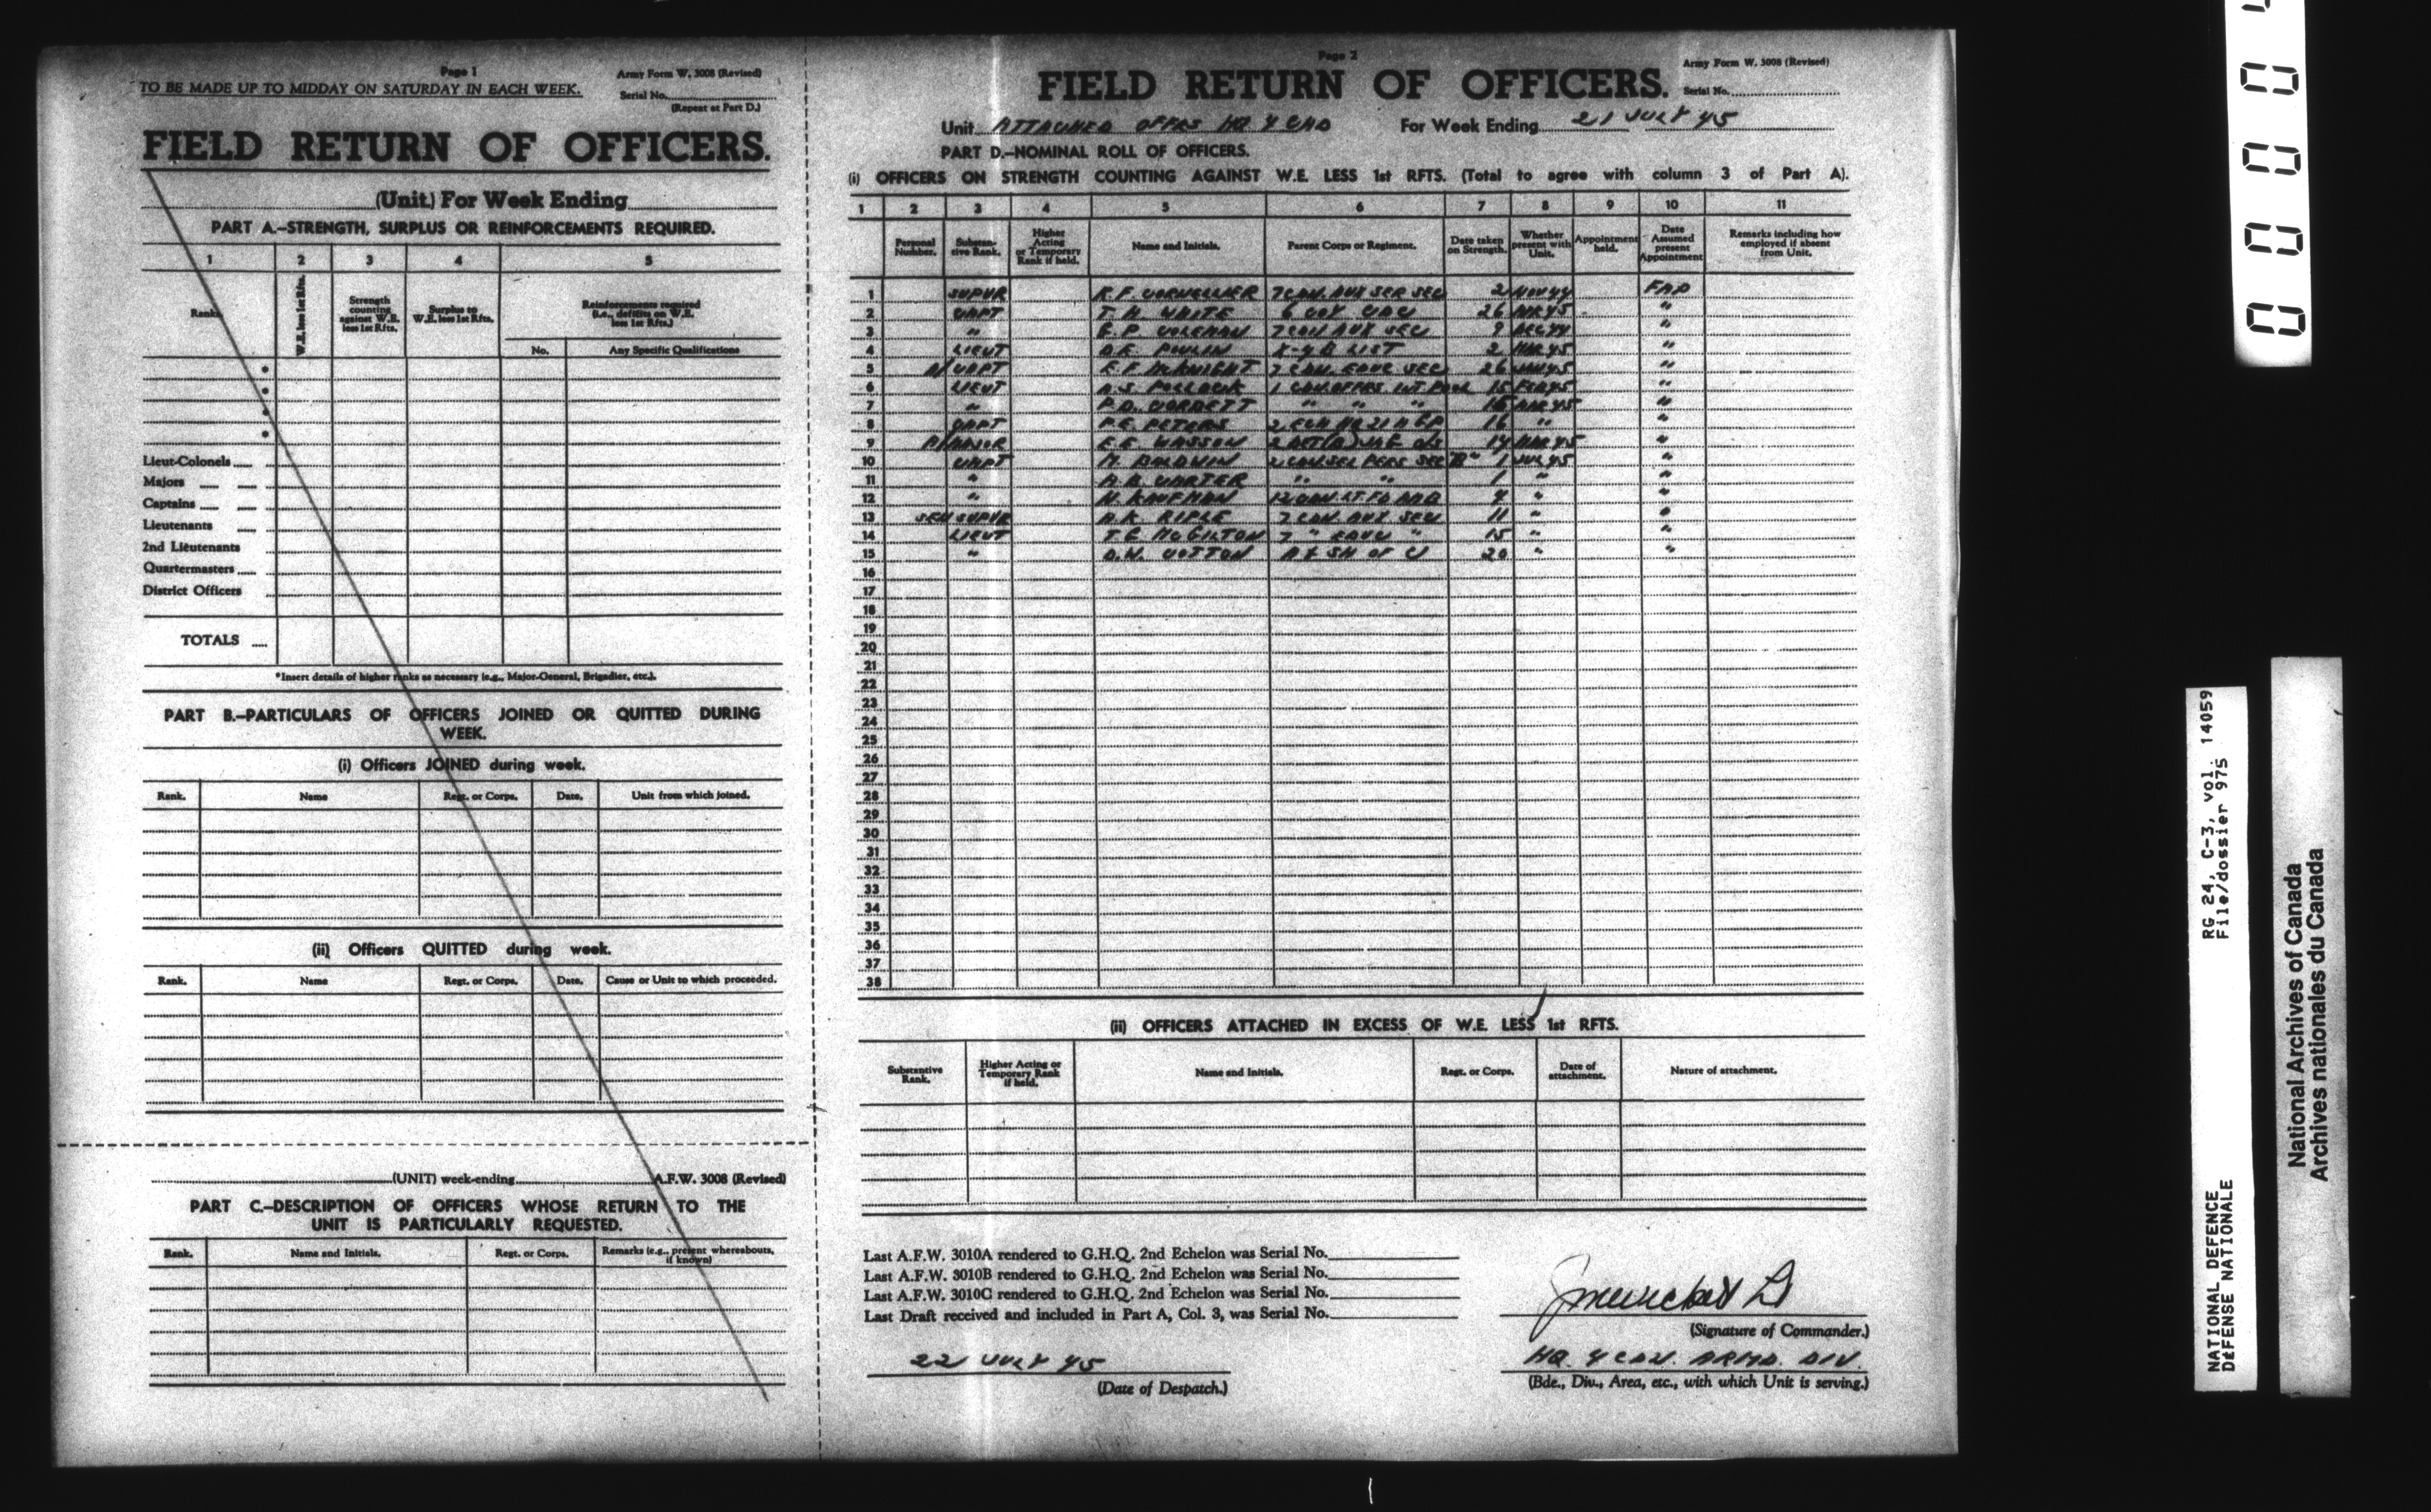 Page 1
Army Form W. 3008 (Revised)
TO BE MADE UP TO MIDDAY ON SATURDAY IN EACH WEEK.
Serial No.
(Repeat at Part D.)
FIELD RETURN OF OFFICERS.
(Unit.) For Week Ending
PART A.—STRENGTH, SURPLUS OR REINFORCEMENTS REQUIRED.
1 2 3 4 5
Ranks W.E. less 1st Rfts. Strength counting against W.E. less 1st Rfts. Surplus to W.E. less 1st Rfts. Reinforcements required (i.e., deficits on W.E. less 1st Rfts.)
No. Any Specific Qualifications
Lieut-Colonels
Majors
Captains
Lieutenants
2nd Lieutenants
Quartermasters
District Officers
TOTALS
*Insert details of higher ranks as necessary (e.g., Major-General, Brigadier, etc.).
PART B.—PARTICULARS OF OFFICERS JOINED OR QUITTED DURING
WEEK.
(i) Officers JOINED during week.
Rank. Name Regt. or Corps. Date. Unit from which joined.
(ii) Officers QUITTED during week.
Rank. Name Regt. or Corps. Date. Cause or Unit to which proceeded.
(UNIT) week-ending A.F.W. 3008 (Revised)
PART C.—DESCRIPTION OF OFFICERS WHOSE RETURN TO THE
UNIT IS PARTICULARLY REQUESTED.
Rank. Name and Initials. Regt. or Corps. Remarks (e.g., present whereabouts, if known)
Page 2
Army Form W. 3008 (Revised)
FIELD RETURN OF OFFICERS.
Serial No.
Unit ATTACHED OFFRS HQ 4 CAD For Week Ending 21 JULY 45
PART D.—NOMINAL ROLL OF OFFICERS.
(i) OFFICERS ON STRENGTH COUNTING AGAINST W.E. LESS 1st RFTS. (Total to agree with column 3 of Part A).
1 2 3 4 5 6 7 8 9 10 11
Personal Number. Substantive Rank. Higher Acting or Temporary Rank if held. Name and Initials. Parent Corps or Regiment. Date taken on Strength. Whether present with Unit. Appointment held. Date Assumed present Appointment Remarks including how employed if absent from Unit.
1 SUPVR R.F. CORVELLIER 7 CAN. AUX SER SEC 2 NOV 44 FAD
2 CAPT T.H. WHITE 6 COY CDC 26 45 "
3 " E.P. COLEMAN 7 CAN AUX SEC 9 DEC 44 "
4 LIEUT D.E. POULIN X-4 B LIST 2 MAR 45 "
5 A/CAPT E.F. McKNIGHT 7 CAN. EDUC SEC 26 JAN 45 "
6 LIEUT A.S. POLLOCK 1 CAN. OFFRS INT. POOL 15 FEB 45 "
7 " P.D. CORBETT " " " 16 MAR 45 "
8 CAPT P.E. PETERS 2 ECH HQ 21 A GP 16 " "
9 A/MAJOR E.E. WASSON 2 DET (A) O/S 14 MAR 45 "
10 CAPT M. BALDWIN 2 CAN SEL PERS SEC "B" 1 JUL 45 "
11 " A.B. CARTER " " 1 " "
12 " N. KAUFMAN 12 CAN. LT. FD AMB 4 " "
13 SEN SUPVR A.K. RIPLE 7 CAN. AUX SEC 11 " "
14 LIEUT T.E. McGILTON 7 " EDUC " 15 " "
15 " D.W. COTTON A & SH OF C 20 " "
16
17
18
19
20
21
22
23
24
25
26
27
28
29
30
31
32
33
34
35
36
37
38
(ii) OFFICERS ATTACHED IN EXCESS OF W.E. LESS 1st RFTS.
Substantive Rank. Higher Acting or Temporary Rank if held. Name and Initials. Regt. or Corps. Date of attachment. Nature of attachment.
Last A.F.W. 3010A rendered to G.H.Q. 2nd Echelon was Serial No.
Last A.F.W. 3010B rendered to G.H.Q. 2nd Echelon was Serial No.
Last A.F.W. 3010C rendered to G.H.Q. 2nd Echelon was Serial No.
Last Draft received and included in Part A, Col. 3, was Serial No.
(Signature of Commander.)
22 JULY 45
HQ. 4 CDN. ARMD. DIV.
(Date of Despatch.)
(Bde., Div., Area, etc., with which Unit is serving.)
NATIONAL DEFENCE RG 24, C-3, vol. 14059
DÉFENSE NATIONALE File/dossier 975
National Archives of Canada
Archives nationales du Canada